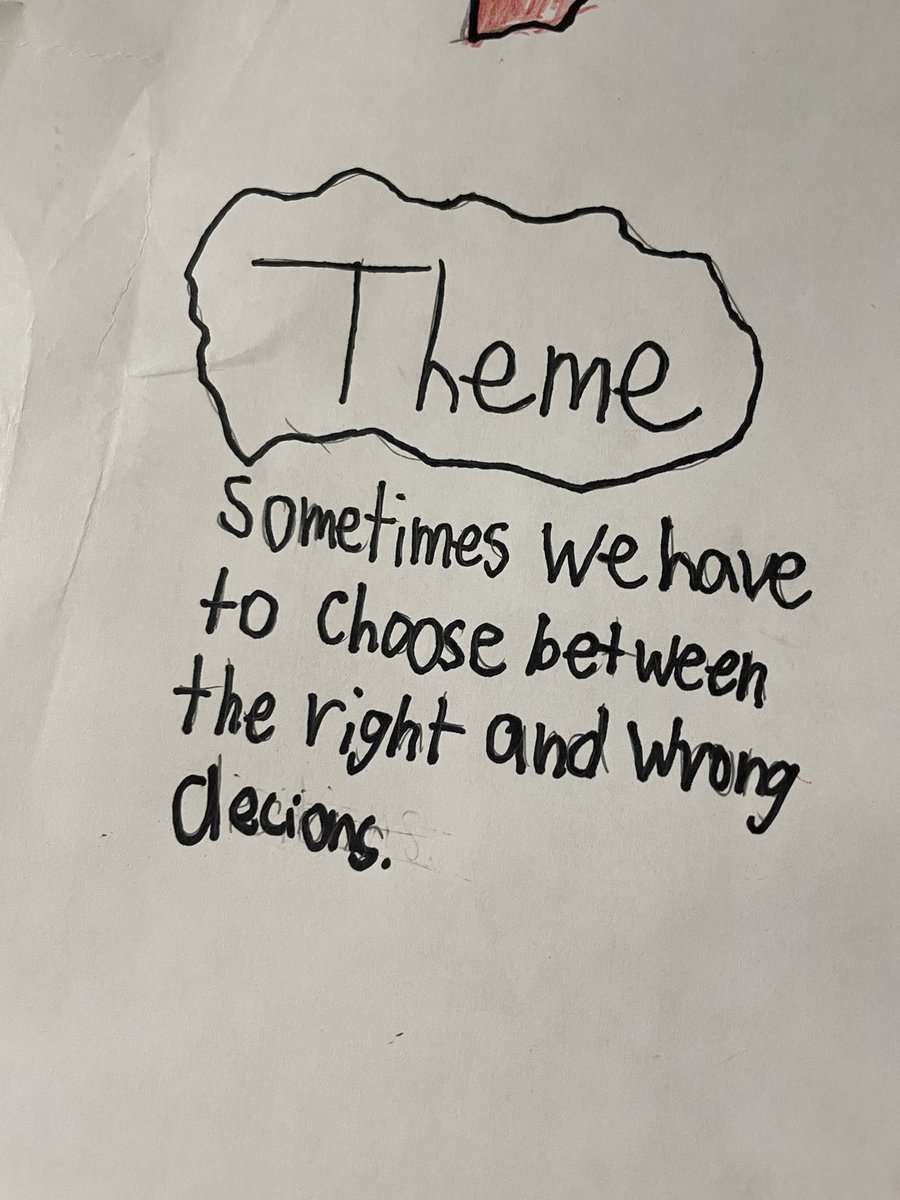 Theme
Sometimes we have
to choose between
the right and wrong
decions.